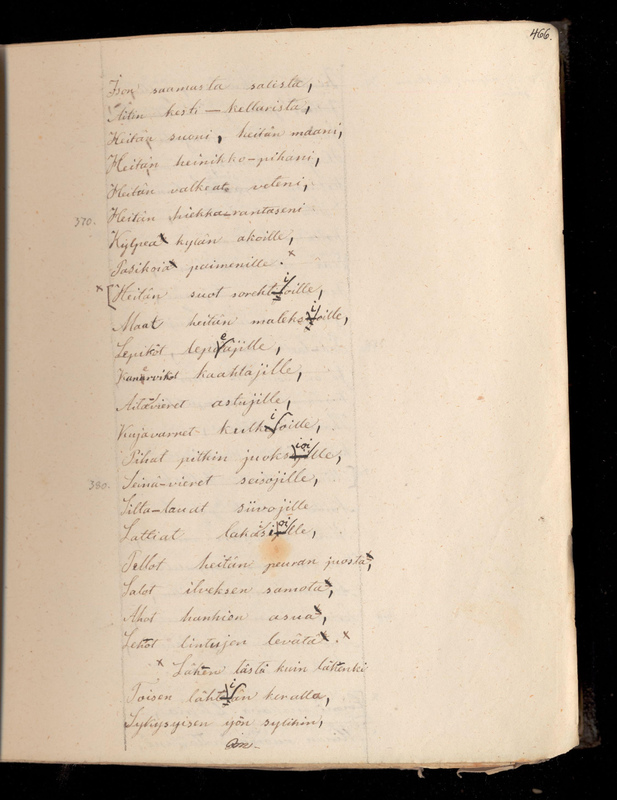 466.
Ison saamasta salista,
Äitin kesti-kellarista,
Heitän suoni, heitän maani,
Heitän heinikko-pihani,
Heitän valkeat veteni,
370. Heitän hiekka-rantaseni
Kylpeä kylän akoille,
Päsikoiä paimenille. ×
× [Heitän suot sorehtioille,
Maat heitän matek ioille,
Lepikot lepeäjille,
Kanervikot kaahtajille,
Aitävieret astujille,
Kujavarret kulkioille,
Pihat pitkin juoksioille,
380. Seinä-vieret seisojille,
Silta-laudat siivojille
Lattiat lakasioille,
Pellot heitän peuran juosta,
Salot ilveksen samota,
Ahot hanhion asua,
Lehot lintujen levätä. ×
× Lähen tästä kuin lähenki
Toisen lähtiän keralla,
Sykysyisen yön sylihin,